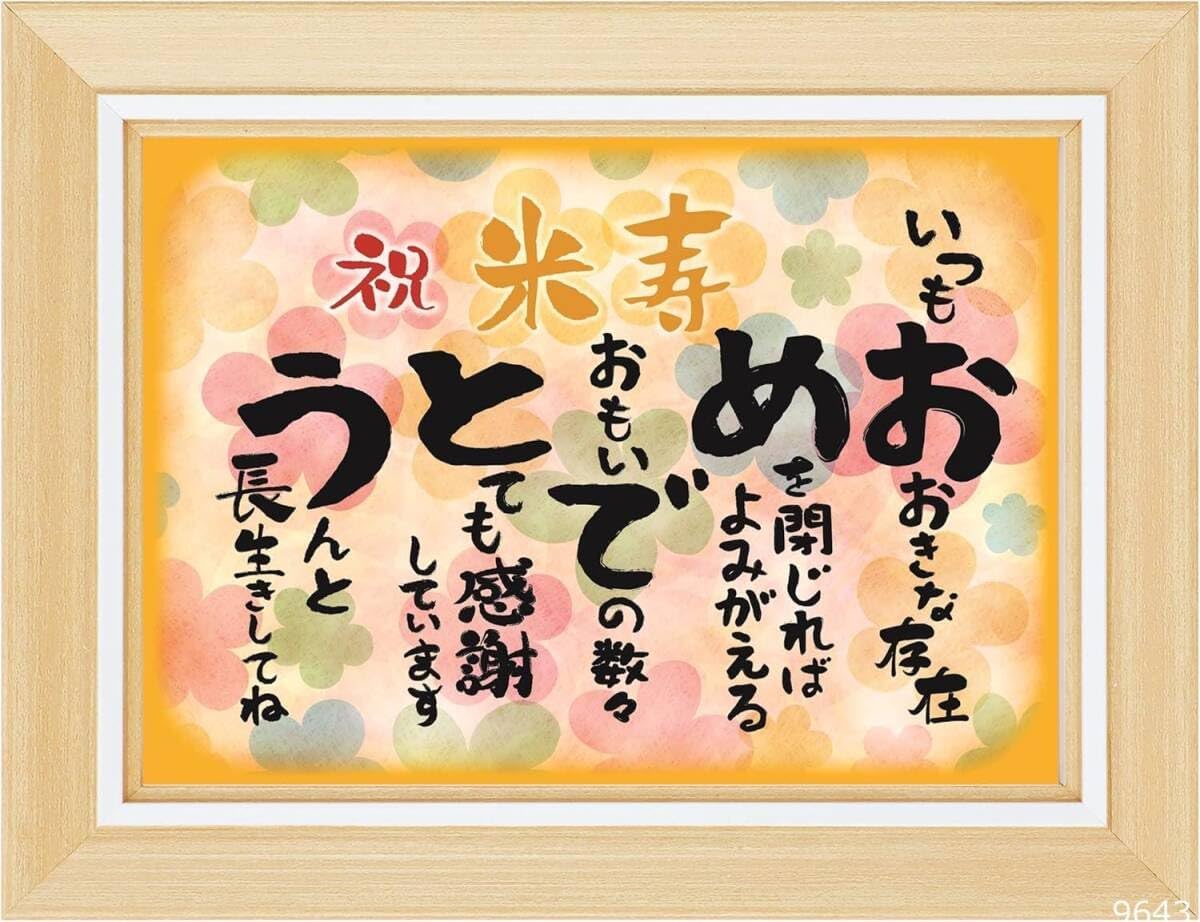 祝 米寿
いつも
おおきな存在
めを閉じれば
よみがえる
おもいでの数々
とても感謝
しています
うんと
長生きしてね
9643